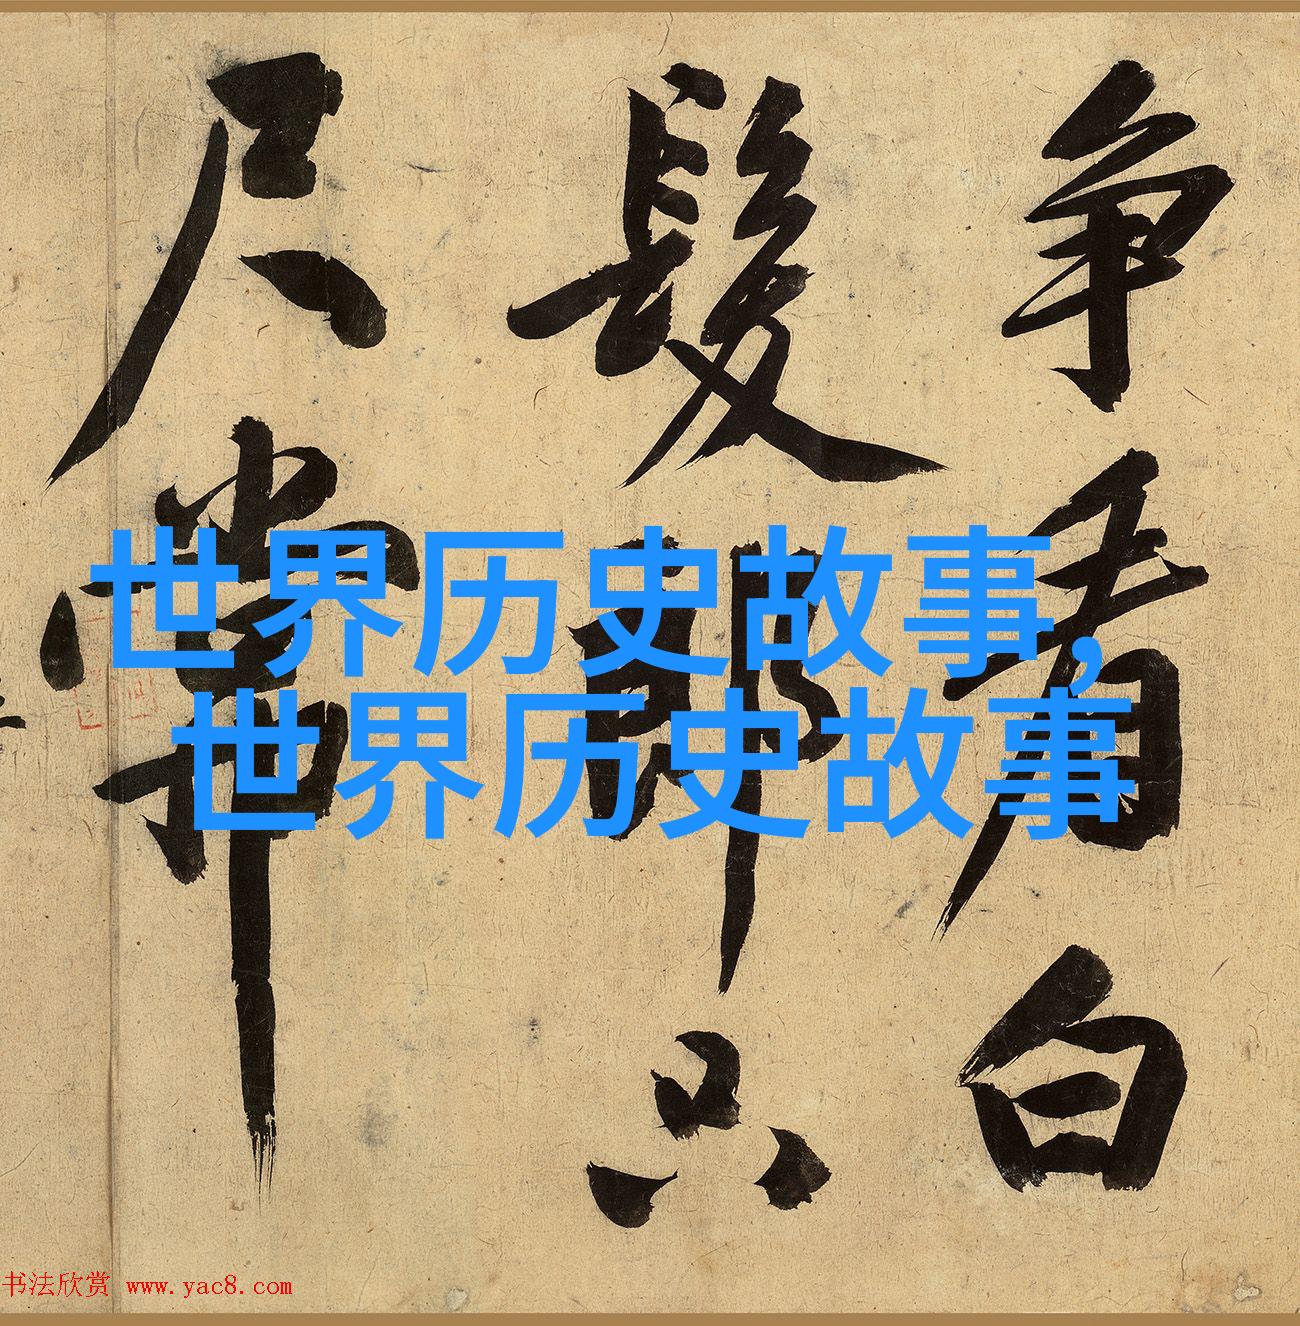 争看白
髮郎只
尺常
世界历史故事,
世界历史故事
书法欣赏 www.yac8.com